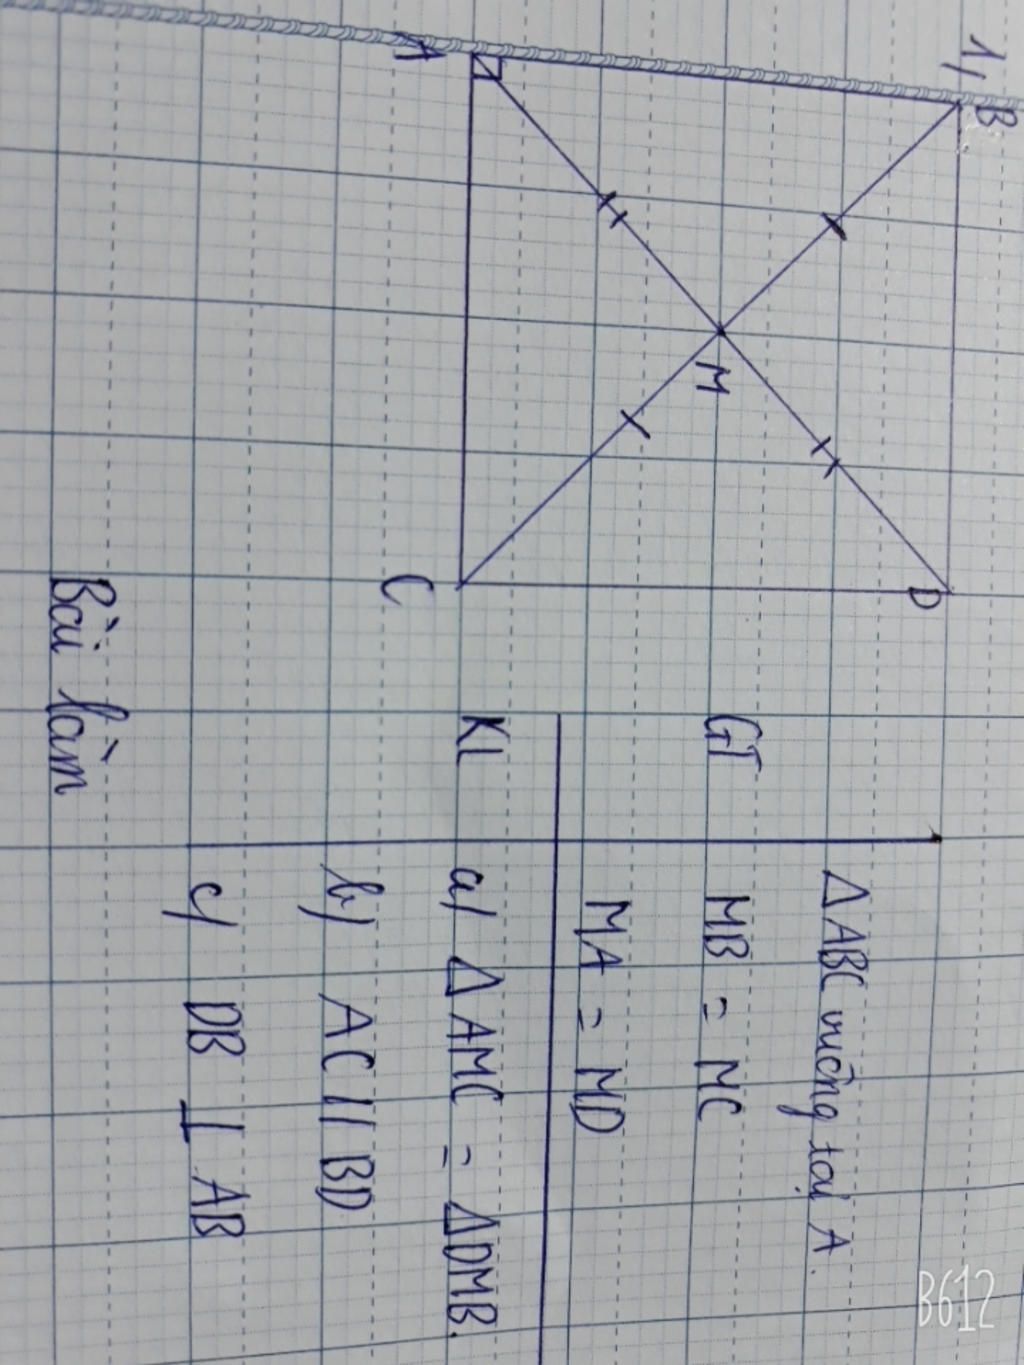 1,
B
D
M
A
C
GT
Δ ABC vuông tại A.
MB = MC
MA = MD
KL
a/ Δ AMC = Δ DMB.
b/ AC // BD
c/ DB ⊥ AB
Bài làm
B612